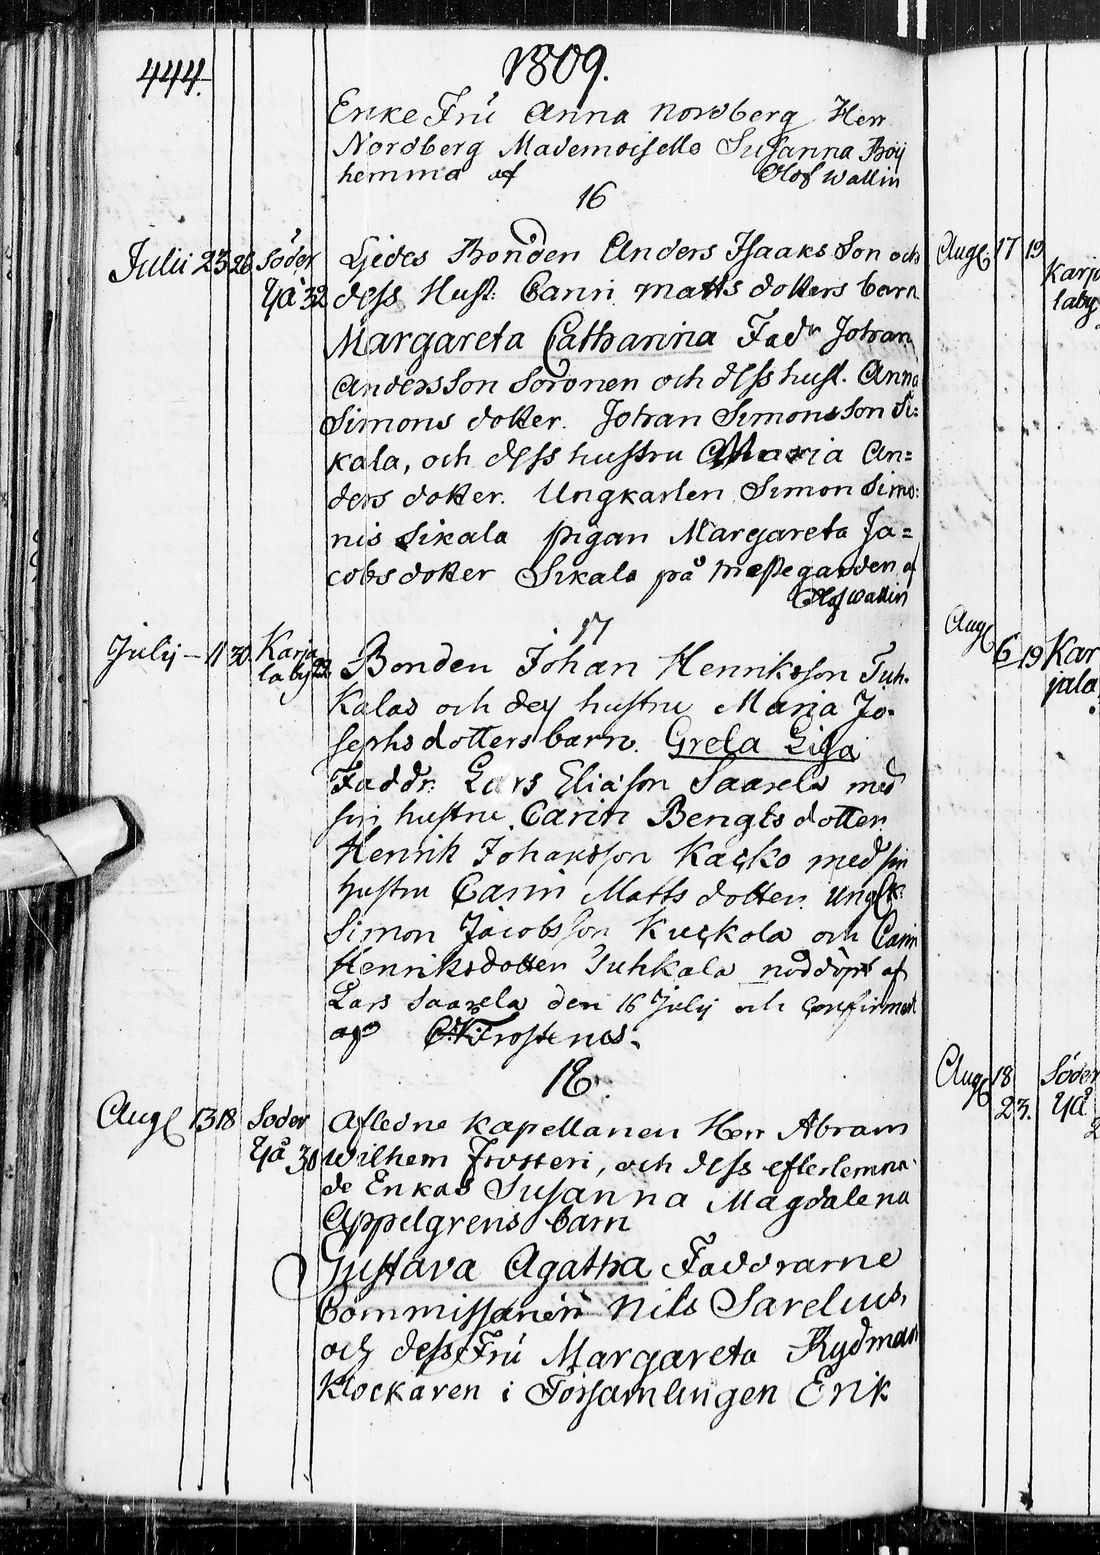 444.
1809.
Enke Fru Anna Nordberg Herr
Nordberg Mademoiselle Susanna Boij
hemma af Olof Wallin
16
Julii 23 26 Söder Ljedes Bonden Anders Isaaks Son och
Yå 32 dess Hust. Carin Matts dotters barn
Margareta Catharina Fadr Johan
Andersson Soronen och dess hust. Anna
Simons dotter. Johan Simonsson Si:
kala, och dess hustru Maria An=
ders dotter. Ungkarlen Simon Simo:
nis Sikala pigan Margareta Ja=
cobs dotter Sikala på Mässegården af
Olof Wallin
17
Julij - 11 30 Karja Bonden Johan Henriksson Tuh-
laby 22 kalas och dess hustru Maria Jo-
sephsdotters barn. Greta Lisa
Faddr. Lars Eliasson Saarela med
sin hustru Carin Bengts dotter
Henrik Johansson Kacko med sin
hustru Carin Matts dotter. Ungk:
Simon Jacobsson Kuckola och Carin
Henriksdotter Tuhkala nöddöpt af
Lars Saarela den 16 Julij och confirmerad
af Frosterus.
18.
Aug 13 18 Söder Aflidne Kapellanen Herr Abram
Yå 30 Wilhem Frosteri, och dess efterlemna-
de Enkas Susanna Magdalena
Appelgrens barn
Gustava Agatha Faddrarne
Commissarien Nils Sarelius,
och dess Fru Margareta Rydman
Klockaren i Församlingen Erik
Aug 17 19
Karja
laby
Aug
6 19 Kar
jala
Aug 18 Söder
23. Yå